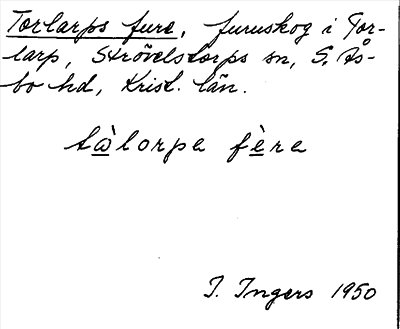 Torlarps fure, furuskog i Tor-
larp, Strövelstorps sn, S. Ås-
bo hd, Krist. län.
tὰlorpa fὲra
I. Ingers 1950